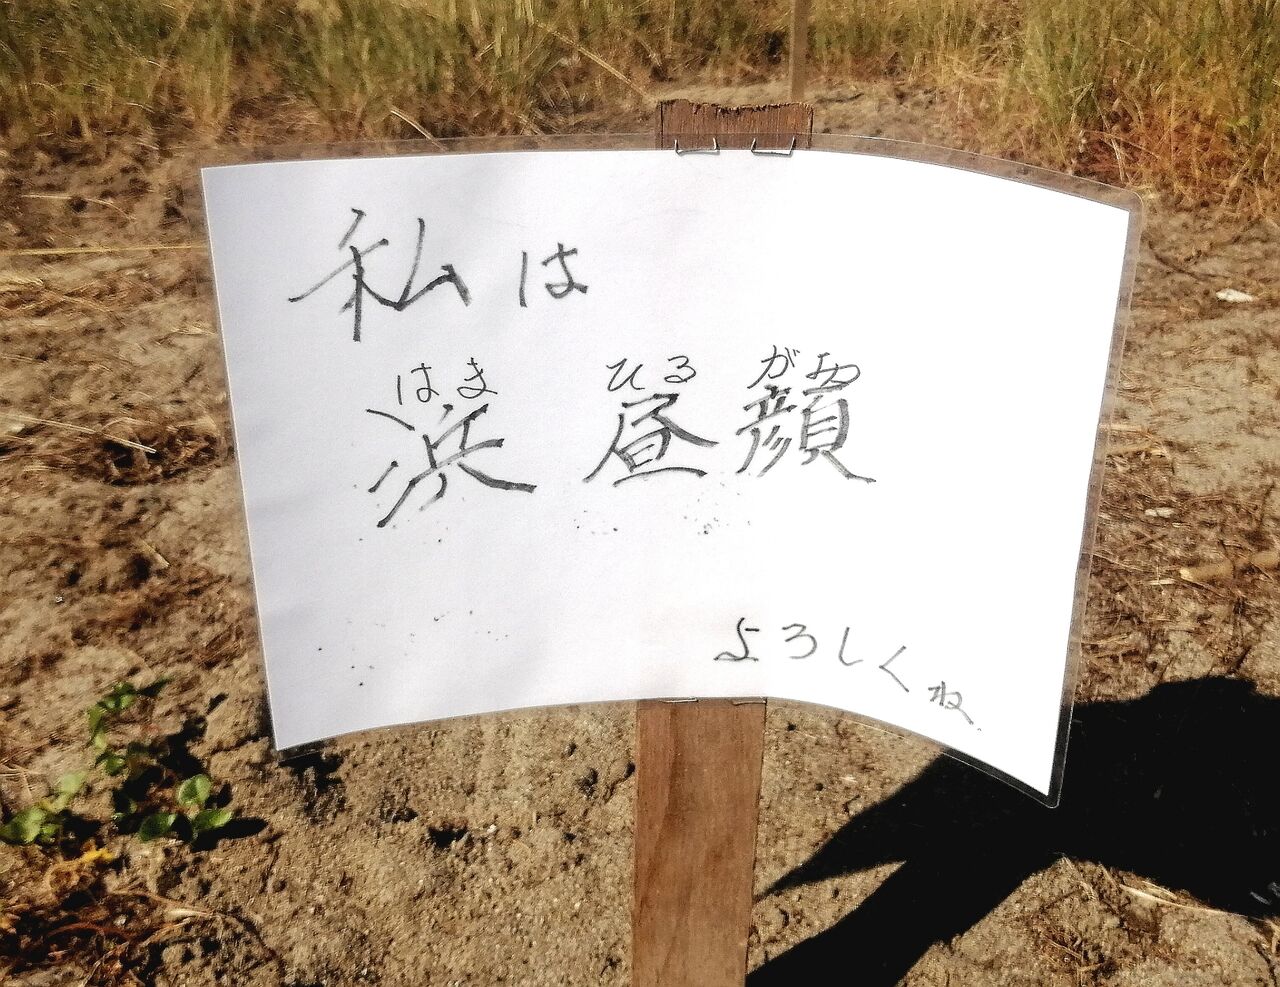 私は
はま ひる がお
浜昼顔
よろしくね